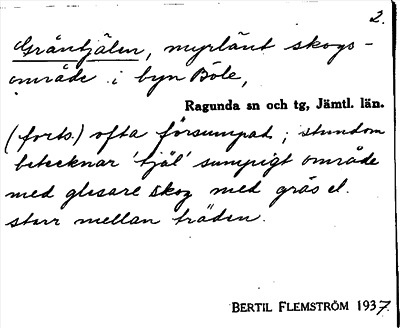 2.
Gråntjälen, myrlänt skogs-
område i byn Böle,
Ragunda sn och tg, Jämtl. län.
(forts.) ofta försumpad; stundom
betecknar 'tjäl' sumpigt område
med glesare skog med gräs el.
starr mellan träden.
BERTIL FLEMSTRÖM 1937.